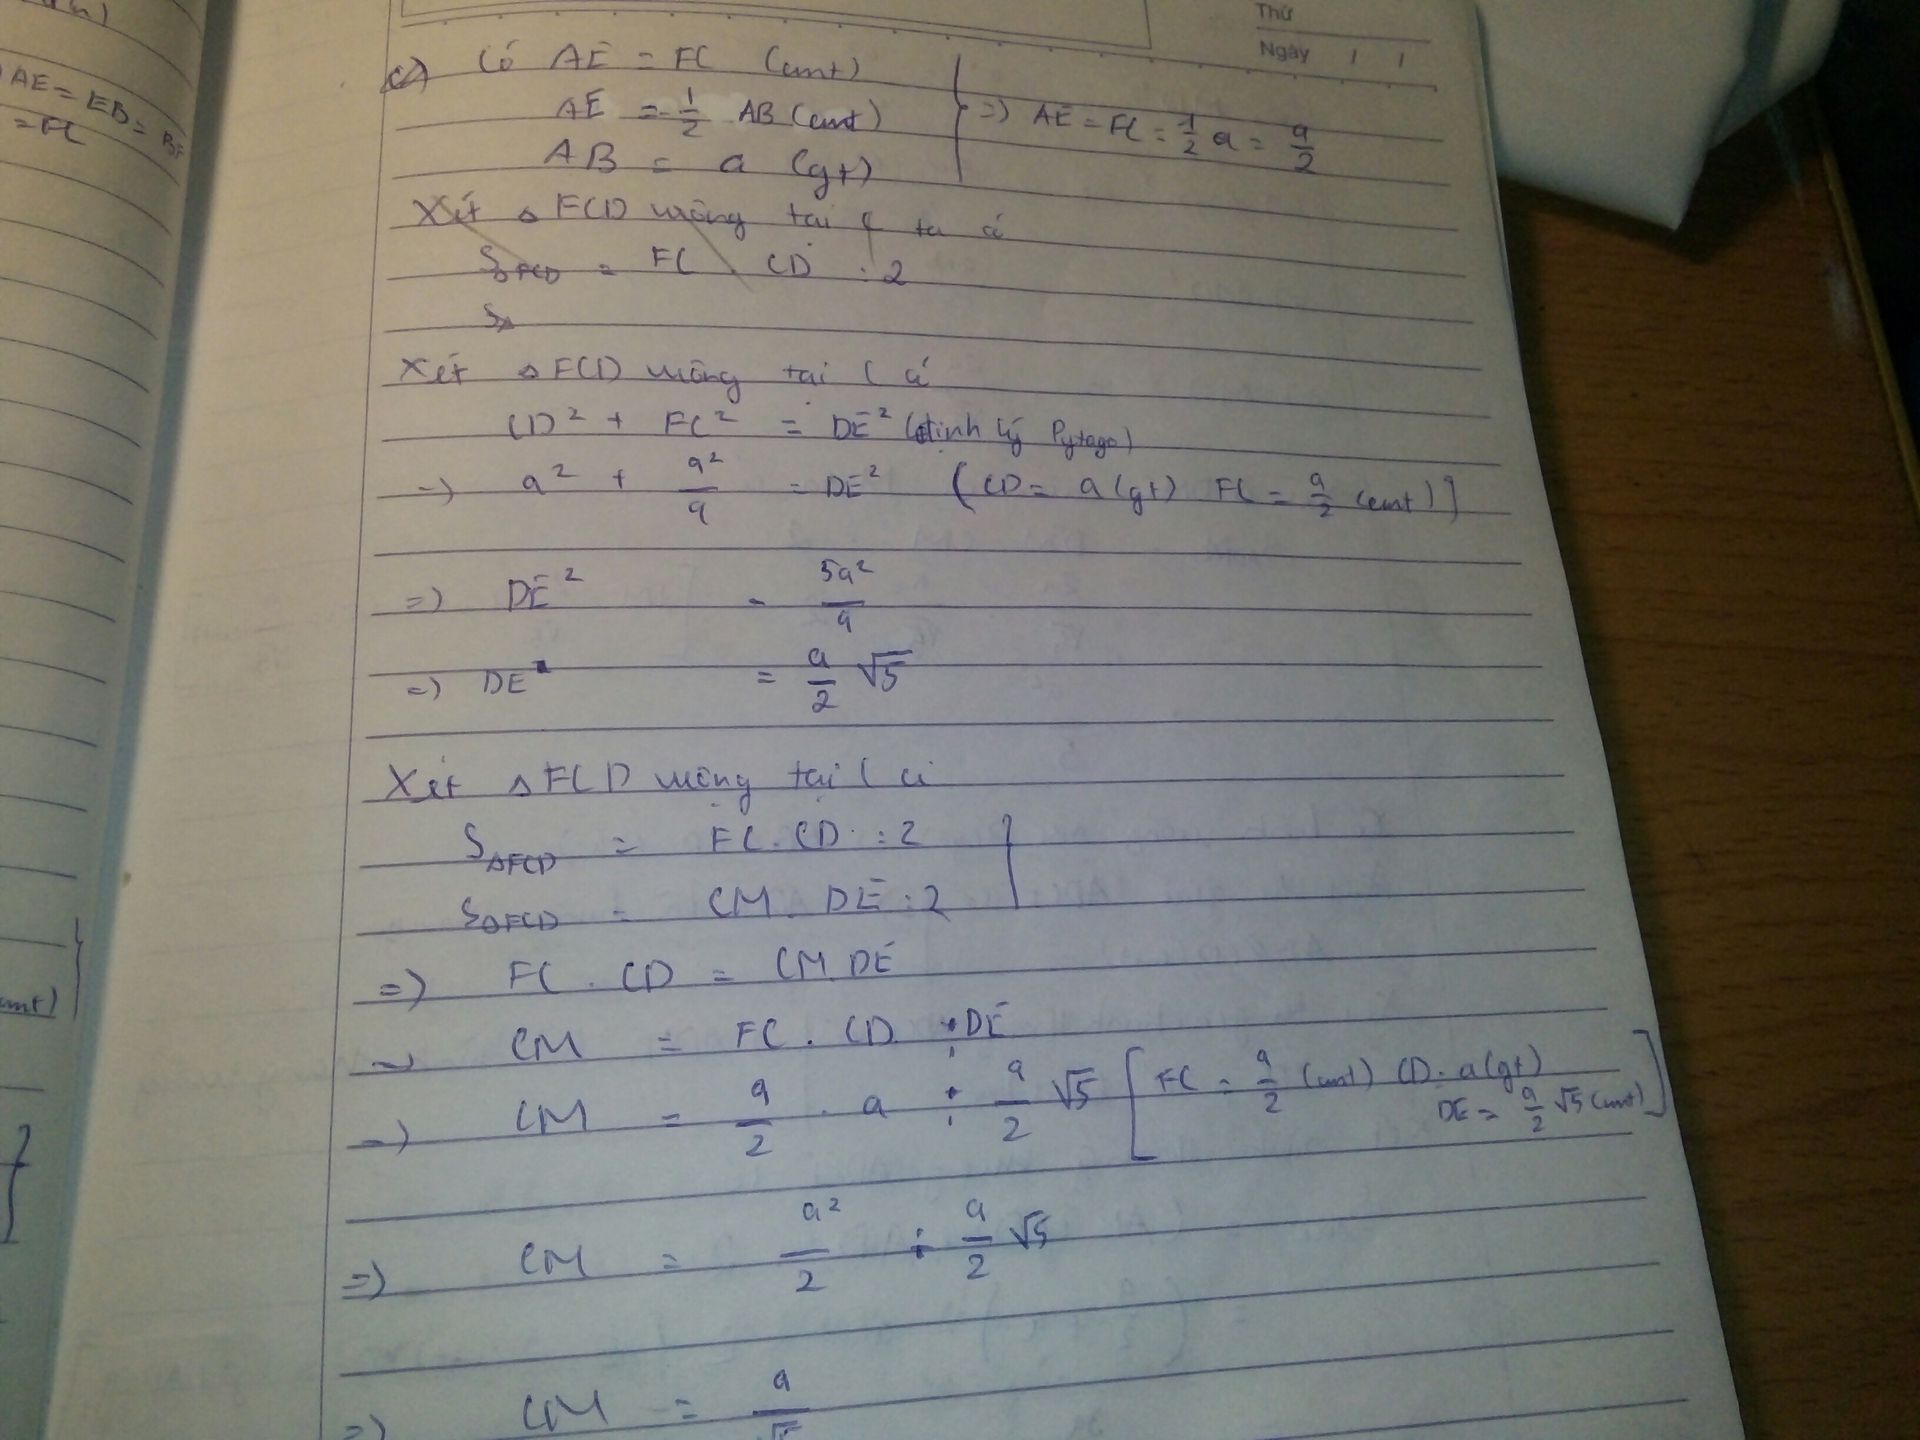 AE = EB = BF
= FC
cmt)
Thứ
Ngày / /
c) Có AE = FC (cmt)
AE = 1/2 AB (cmt)
AB = a (gt)
=> AE = FC = 1/2 a = a/2
Xét △FCD vuông tại C ta có
S△FCD = FC CD : 2
S△
Xét △FCD vuông tại C có
CD² + FC² = DE² (định lý Pytago)
=> a² + a²/4 = DE² (CD = a (gt) FC = a/2 (cmt)]
=> DE² = 5a²/4
=> DE = a/2 √5
Xét △FCD vuông tại C có
S△FCD = FC . CD : 2
S△FCD = CM . DE : 2
=> FC . CD = CM . DE
=> CM = FC . CD : DE
=> CM = a/2 . a : a/2 √5 [FC = a/2 (cmt) CD = a (gt)
DE = a/2 √5 (cmt)]
=> CM = a²/2 : a/2 √5
=> CM = a/√5